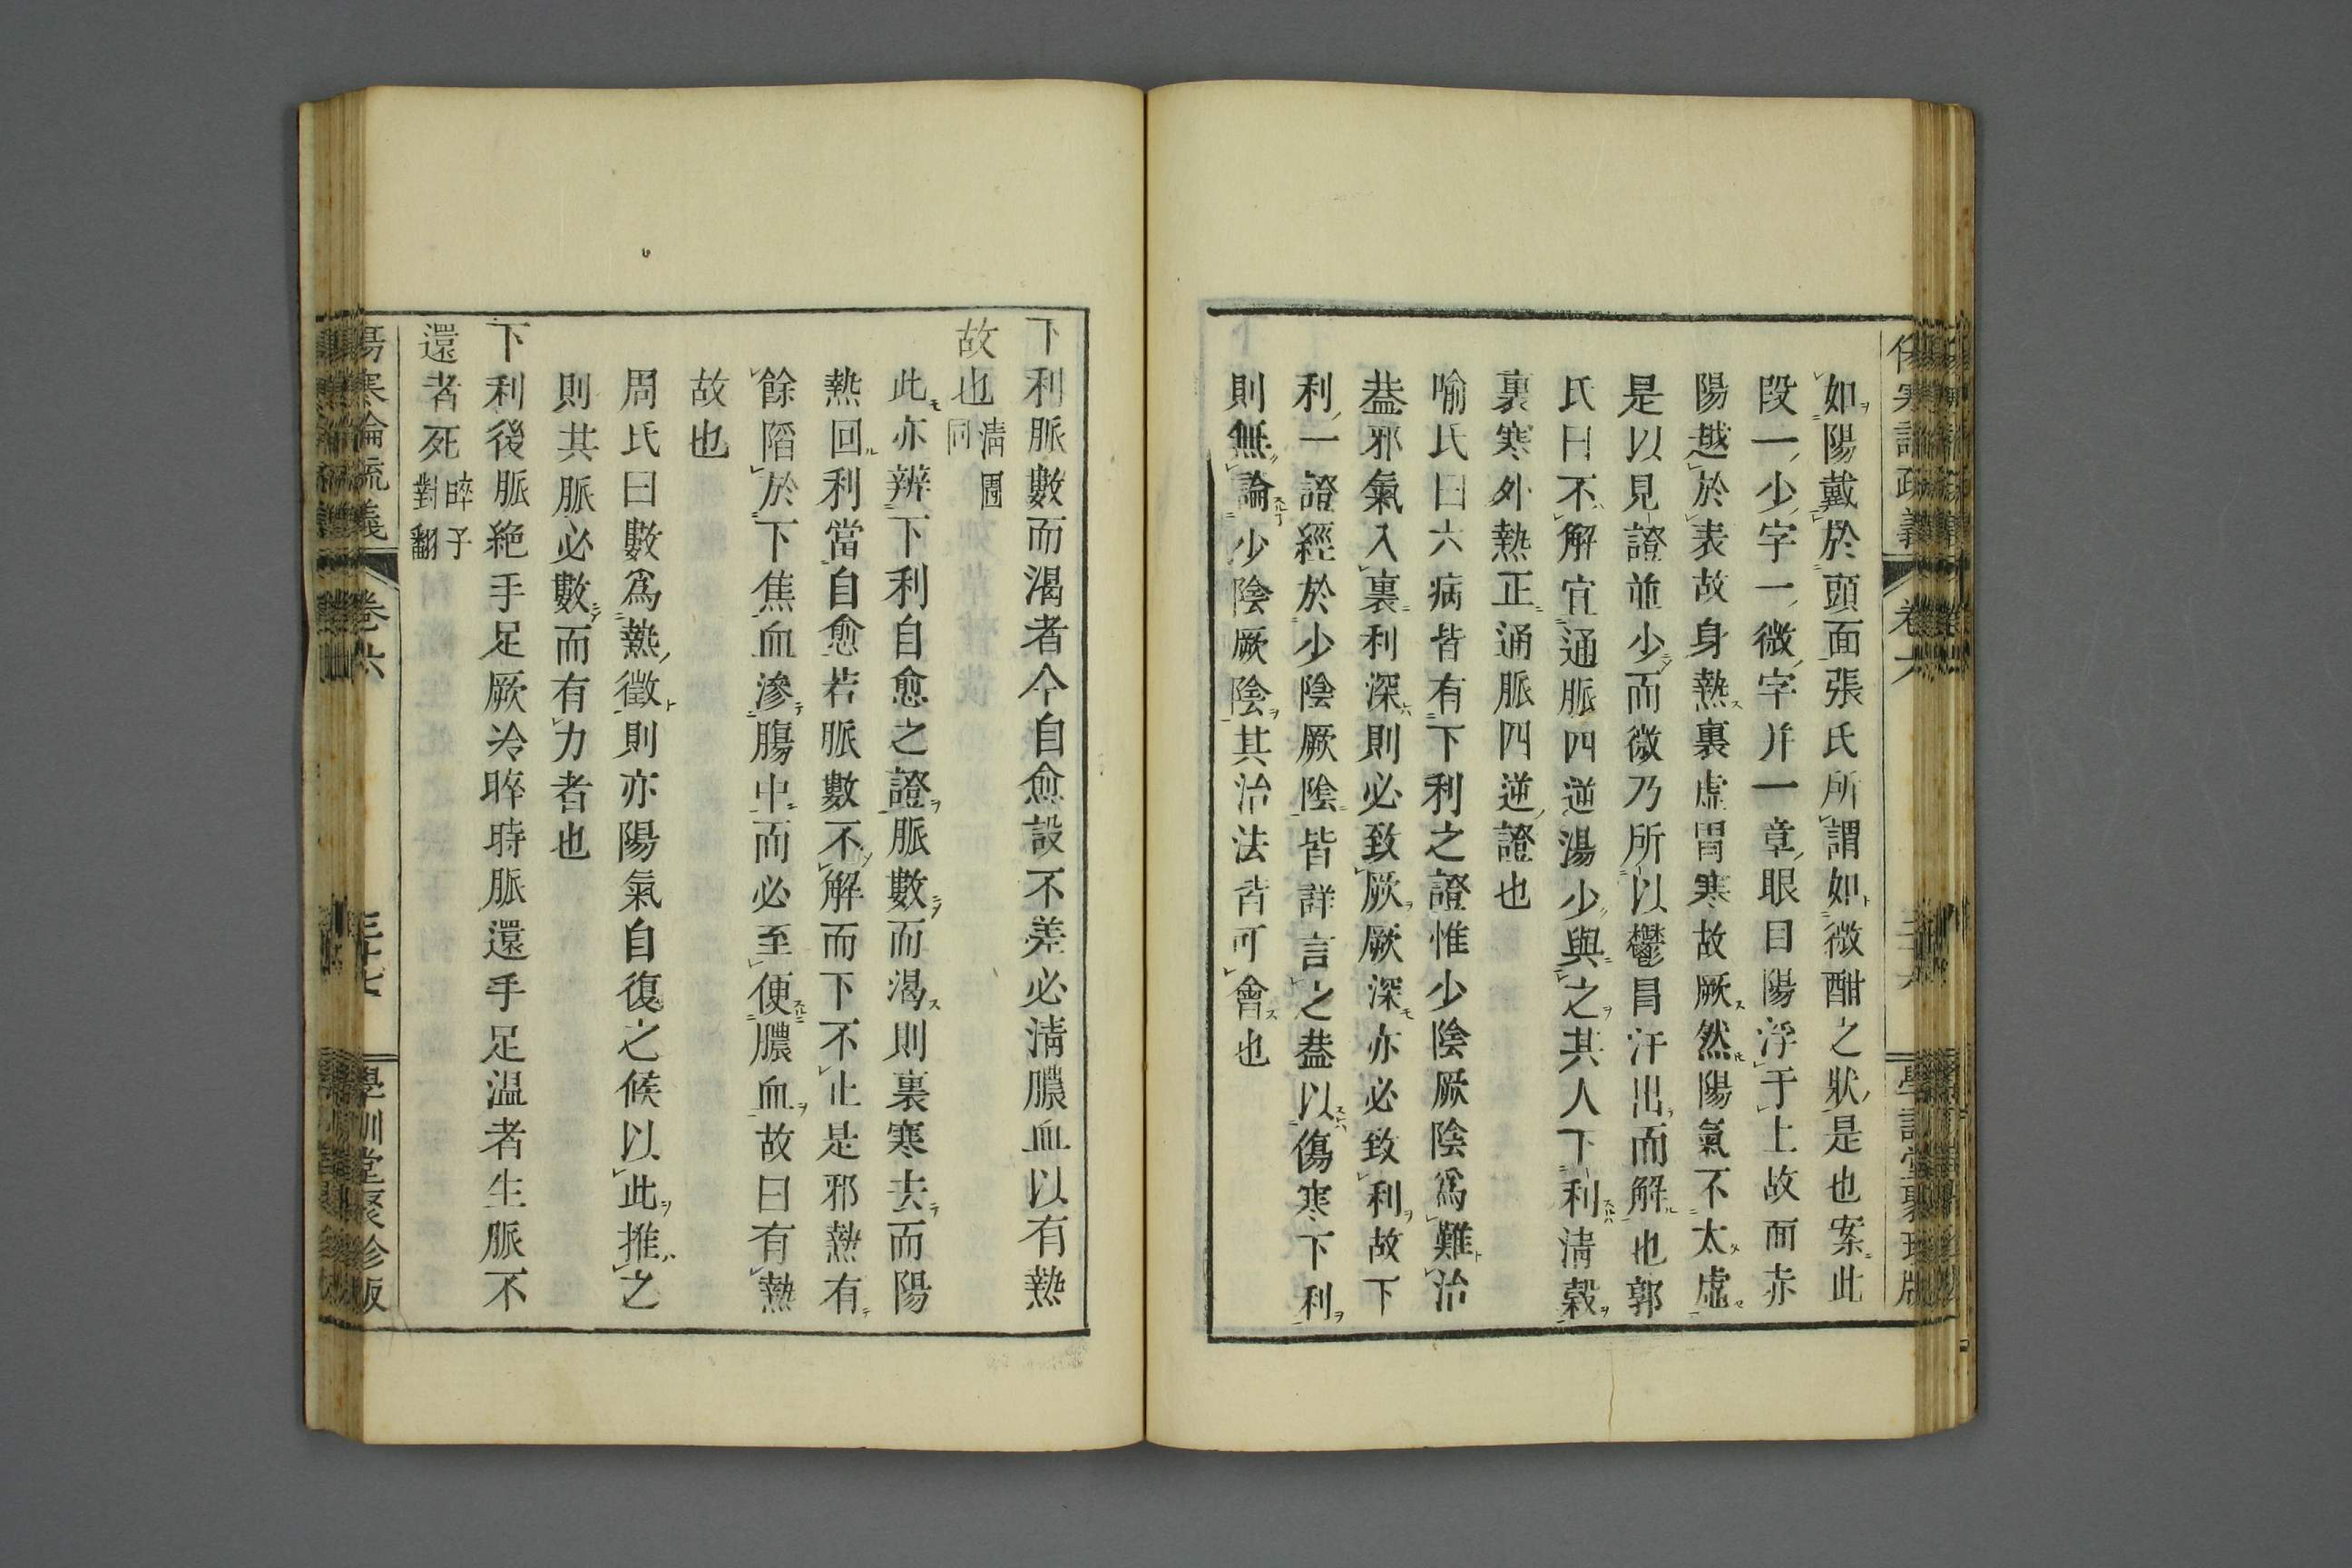 傷寒論疏義 卷六 學訓堂聚珍版
如陽戴於頭面張氏所謂如微酣之狀是也案此
段一少字一微字并一章眼目陽浮于上故面赤
陽越於表故身熱裏虛胃寒故厥然陽氣不太虛
是以見證並少而微乃所以鬱冒汗出而解也郭
氏曰不解宜通脈四逆湯少與之其人下利淸穀
裏寒外熱正通脈四逆證也
喻氏曰六病皆有下利之證惟少陰厥陰爲難治
葢邪氣入裏利深則必致厥厥深亦必致利故下
利一證經於少陰厥陰皆詳言之葢以傷寒下利
則無論少陰厥陰其治法皆可會也
下利脈數而渴者今自愈設不差必淸膿血以有熱
故也淸圊同
此亦辨下利自愈之證脈數而渴則裏寒去而陽
熱回利當自愈若脈數不解而下不止是邪熱有
餘陷於下焦血滲腸中而必至便膿血故曰有熱
故也
周氏曰數爲熱徵則亦陽氣自復之候以此推之
則其脈必數而有力者也
下利後脈絶手足厥冷晬時脈還手足温者生脈不
還者死晬子對翻
傷寒論疏義 卷六 三十七 學訓堂聚珍版